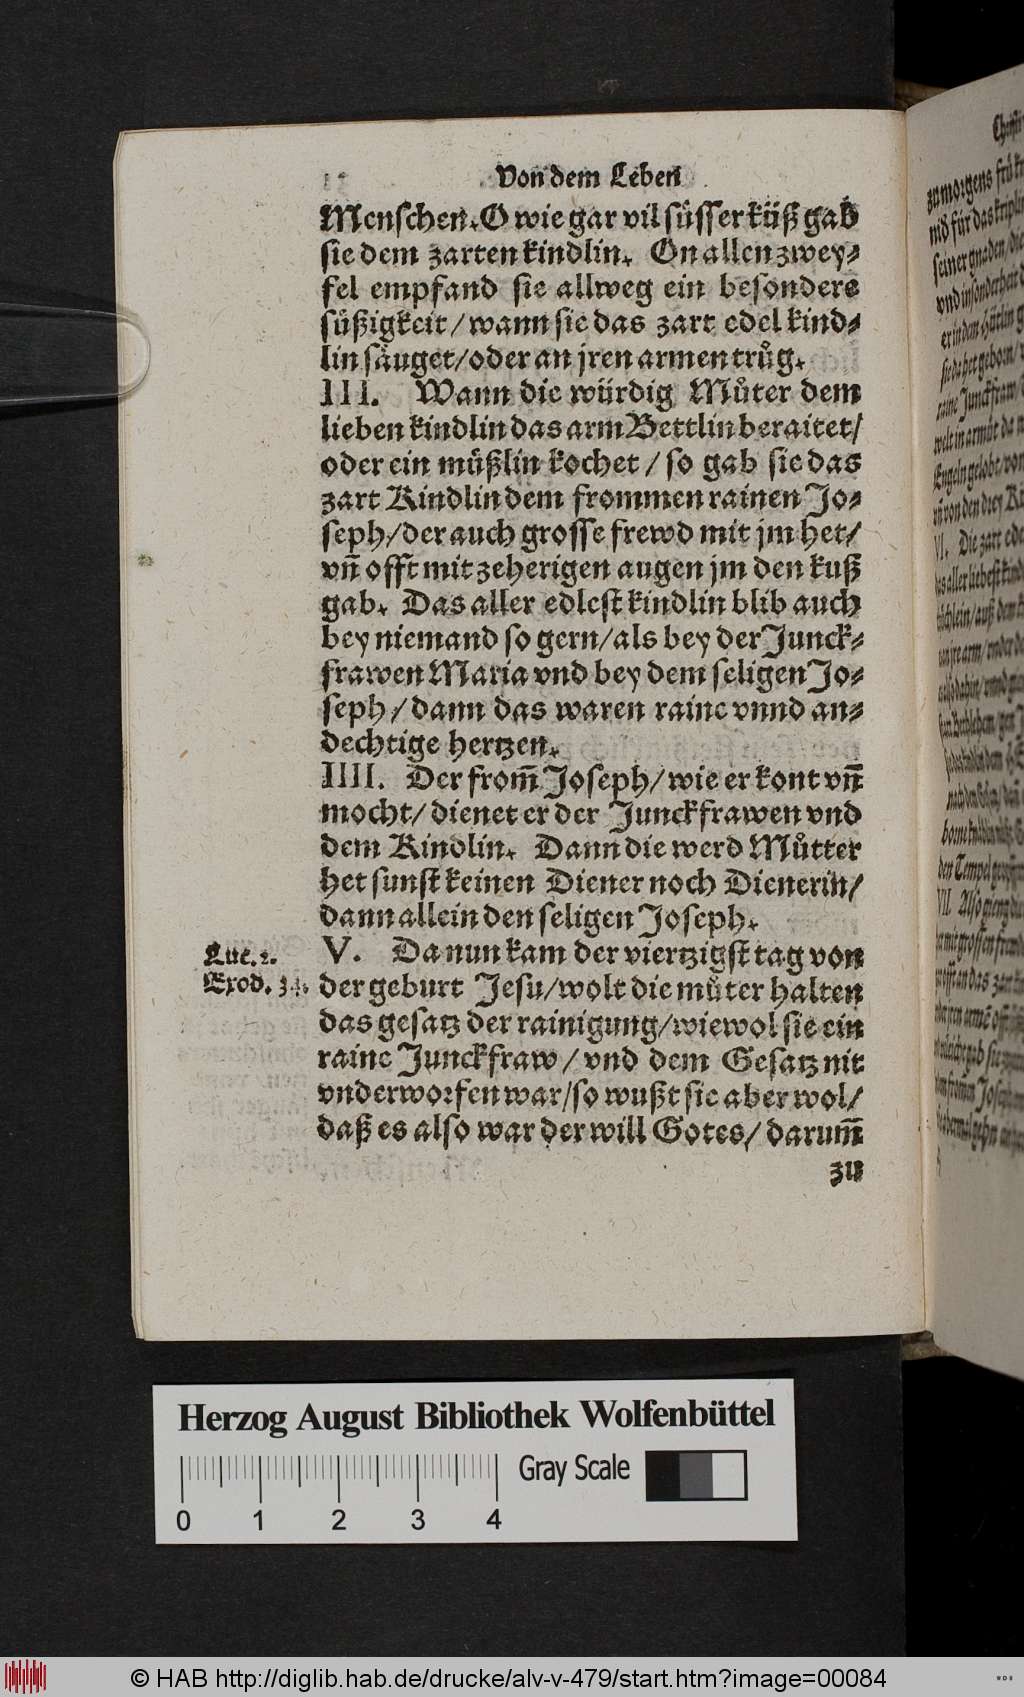 Von dem Leben
Menschen. O wie gar vil süsser küß gab
sie dem zarten kindlin. On allen zwey⸗
fel empfand sie allweg ein besondere
süßigkeit / wann sie das zart edel kind⸗
lin säuget / oder an jren armen trůg.
III. Wann die würdig Můter dem
lieben kindlin das arm Bettlin beraitet /
oder ein můßlin kochet / so gab sie das
zart Kindlin dem frommen rainen Jo⸗
seph / der auch grosse frewd mit jm het /
vñ offt mit zeherigen augen jm den kuß
gab. Das aller edlest kindlin blib auch
bey niemand so gern / als bey der Junck⸗
frawen Maria vnd bey dem seligen Jo⸗
seph / dann das waren raine vnnd an⸗
dechtige hertzen.
IIII. Der from̃ Joseph / wie er kont vñ
mocht / dienet er der Junckfrawen vnd
dem Kindlin. Dann die werd Můtter
het sunst keinen Diener noch Dienerin /
dann allein den seligen Joseph.
Luc. 2.
Exod. 34.
V. Da nun kam der viertzigst tag von
der geburt Jesu / wolt die můter halten
das gesatz der rainigung / wiewol sie ein
raine Junckfraw / vnd dem Gesatz nit
vnderworfen war / so wußt sie aber wol /
daß es also war der will Gotes / darum̃
zu
zu morgens frü
nid für das kripl
seiner gnaden / die
vnd insonderheit
er in dem Hätlin
sie da het geborn /
raine Junckfraw
welt in armůt da
Engeln gelobt / von
vñ von den drey
VI. Die zart ede
das aller liebest kind
den Tempel
VII. Also gieng
Herzog August Bibliothek Wolfenbüttel
0 1 2 3 4
Gray Scale
© HAB http://diglib.hab.de/drucke/alv-v-479/start.htm?image=00084